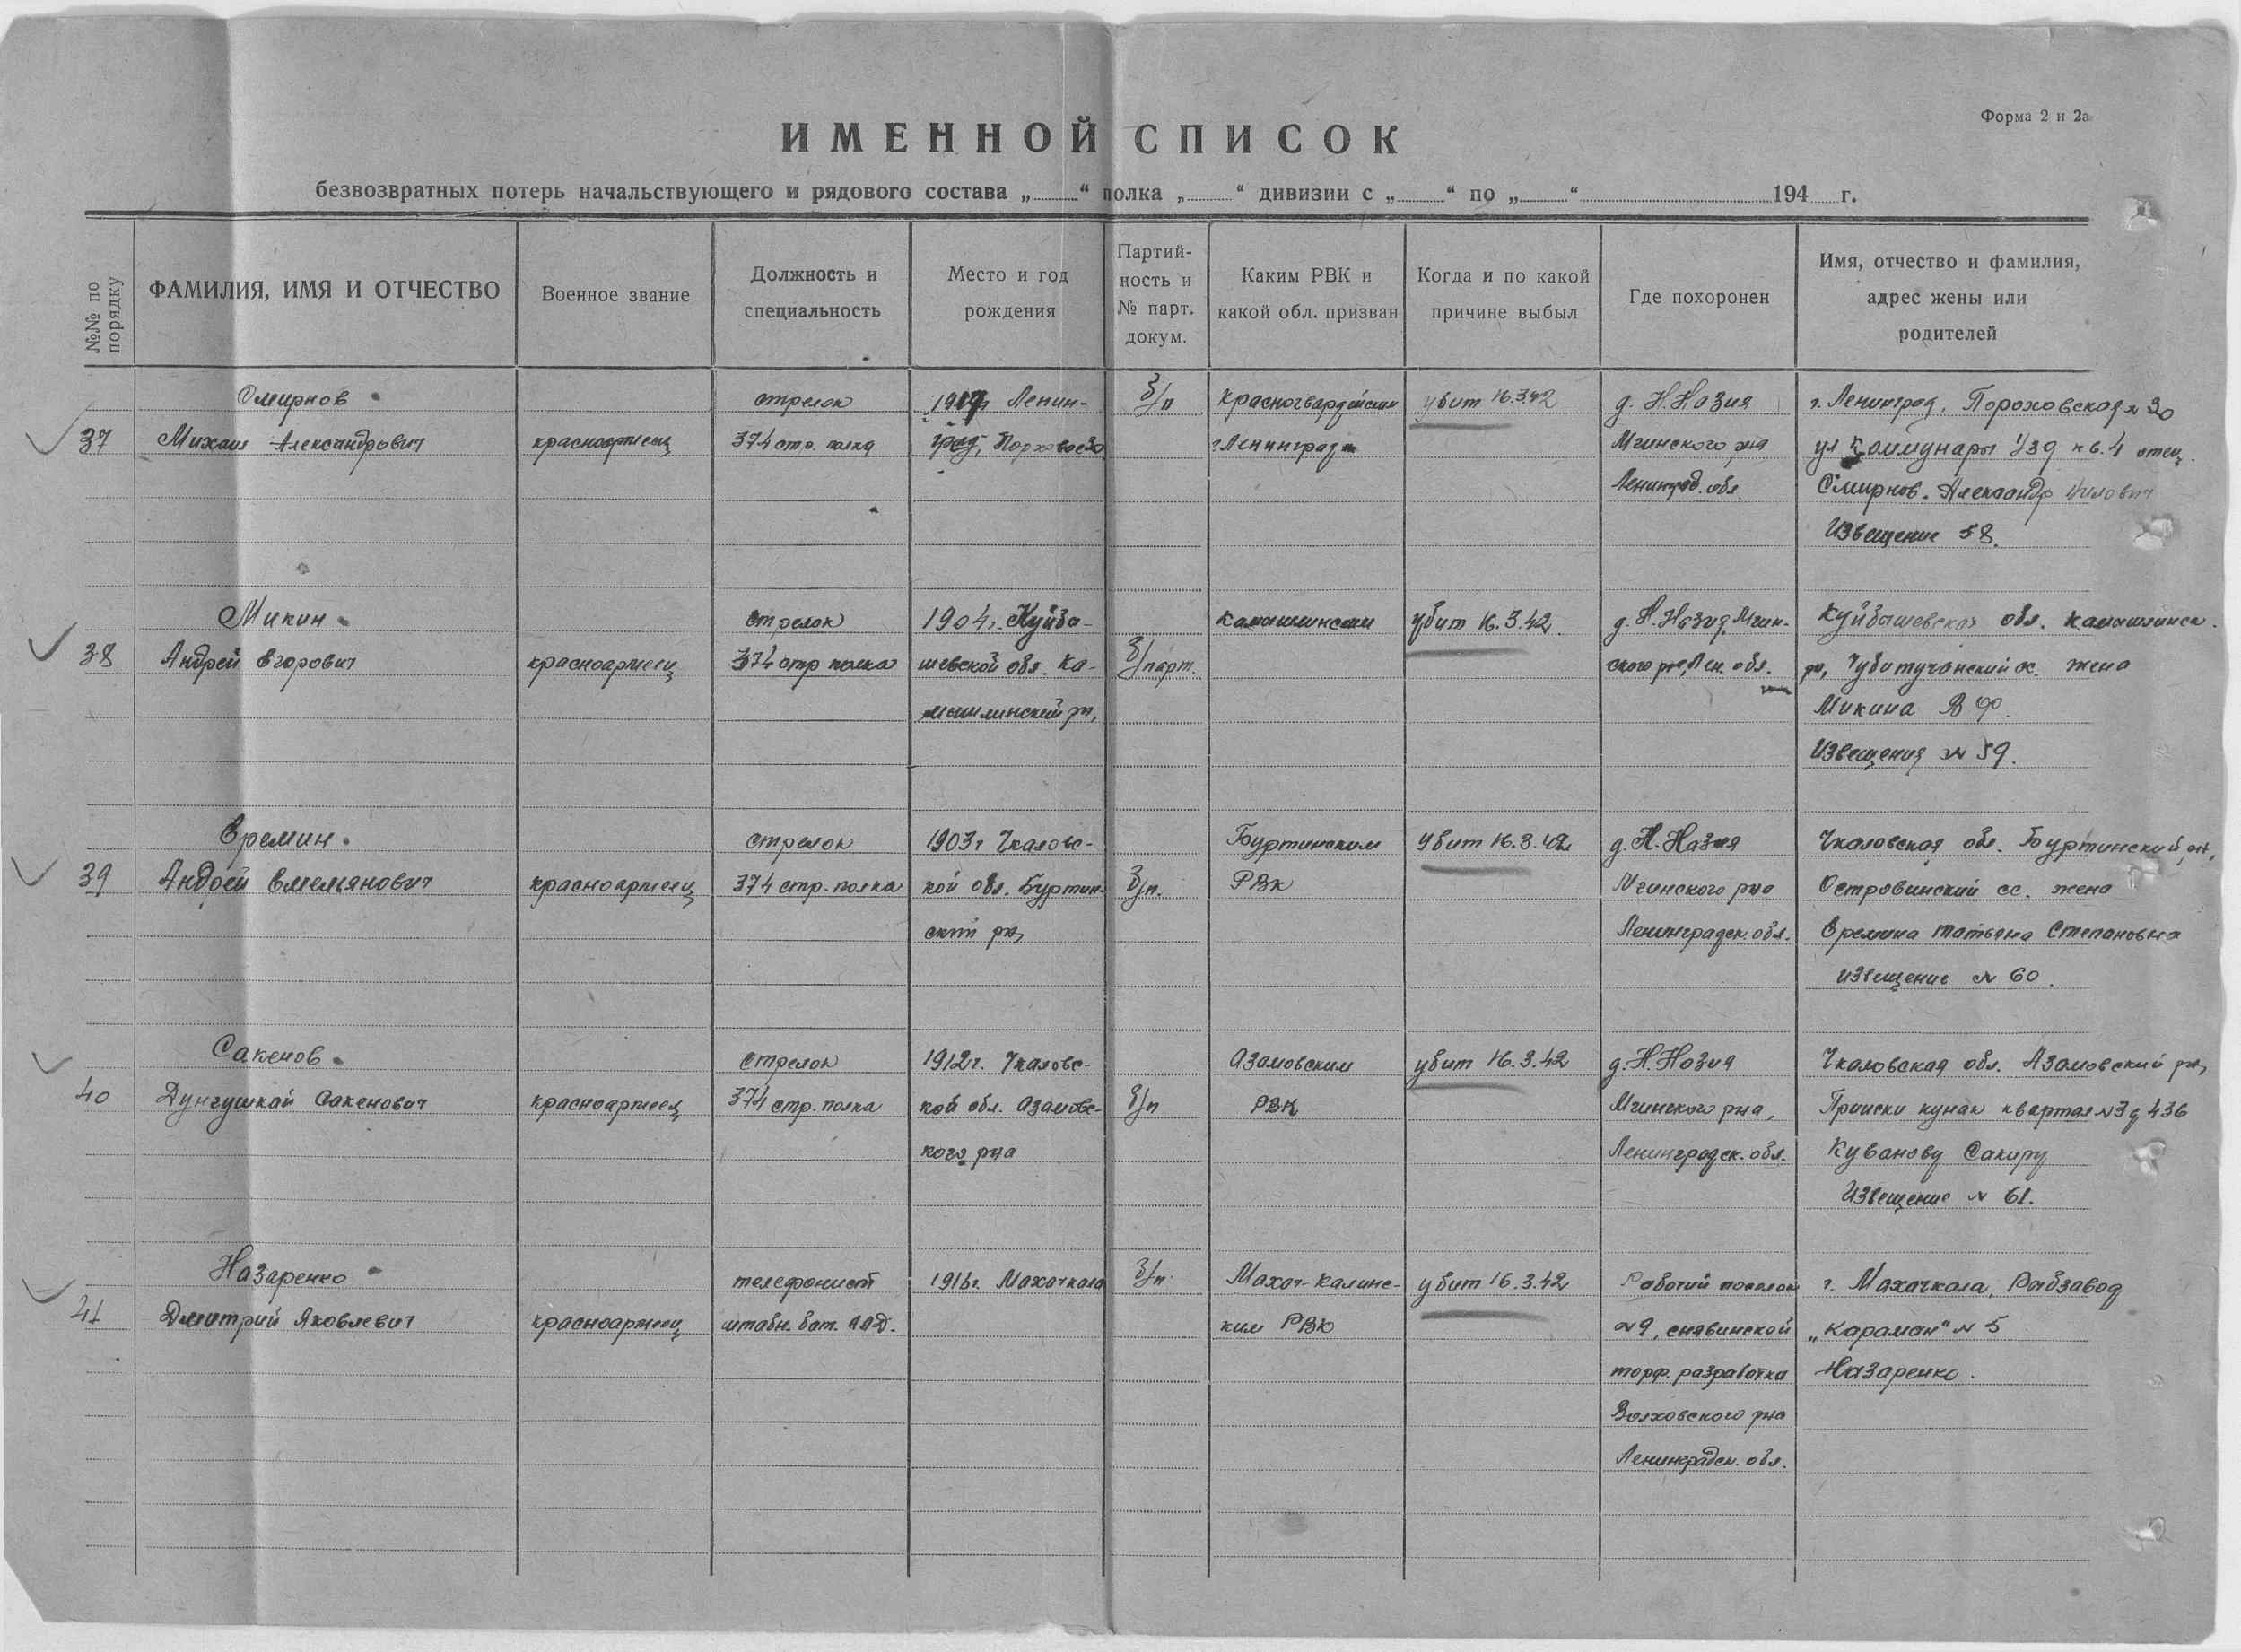 Форма 2 и 2а
ИМЕННОЙ СПИСОК
безвозвратных потерь начальствующего и рядового состава „ “ полка „ “ дивизии с „ “ по „ “ 194 г.
№№ по порядку
ФАМИЛИЯ, ИМЯ И ОТЧЕСТВО
Военное звание
Должность и
специальность
Место и год
рождения
Партий-
ность и
№ парт.
докум.
Каким РВК и
какой обл. призван
Когда и по какой
причине выбыл
Где похоронен
Имя, отчество и фамилия,
адрес жены или
родителей
37
Смирнов
Михаил Александрович
красноармеец
стрелок
374 стр. полка
Ленин-
град,
б/п
Красногвардейским
г. Ленинград
убит 16.3.42
д. Н. Назия
Мгинского рна
Ленинград. обл.
г. Ленинград, Пороховская № 30
ул Коммунары 1/39 кв. 4 отец
Смирнов. Александр
Извещение 58.
38
Микин
Андрей Егорович
красноармеец
стрелок
374 стр полка
1904г. Куйбы-
шевской обл. Ка-
мышлинский рн,
б/парт.
Камышлинским
убит 16.3.42.
д. Н. Назия, Мгин-
ского рна, Лен. обл.
Куйбышевская обл. Камышлинск.
рн, жена
Микина В Ф.
Извещения № 59.
39
Еремин
Андрей Емельянович
красноармеец
стрелок
374 стр. полка
1903г Чкаловс-
кой обл. Буртин-
ский рн,
б/п.
Буртинским
РВК
убит 16.3.42
д. Н. Назия
Мгинского рна
Ленинградск. обл.
Чкаловская обл. Буртинский рн,
Островинский сс. жена
Еремина Татьяна Степановна
извещение № 60.
40
Сакенов
Дунгушкай Сакенович
красноармеец
стрелок
374 стр. полка
1912г. Чкаловс-
кой обл. Азамовс-
кого рна
б/п
Азамовским
РВК
убит 16.3.42
д. Н. Назия
Мгинского рна,
Ленинградск. обл.
Чкаловская обл. Азамовский рн,
Прииски кумак квартал №3 д 436
Куванову Сакиру
Извещение № 61.
41
Назаренко
Дмитрий Яковлевич
красноармеец
телефонист
штабн. бат.
1916г. Махачкала
б/п
Махач-Калинс-
ким РВК
убит 16.3.42
Рабочий поселок
№9, синявинской
торф. разработки
Волховского рна
Ленинградск. обл.
г. Махачкала, Рыбзавод
„Караман“ № 5
Назаренко.